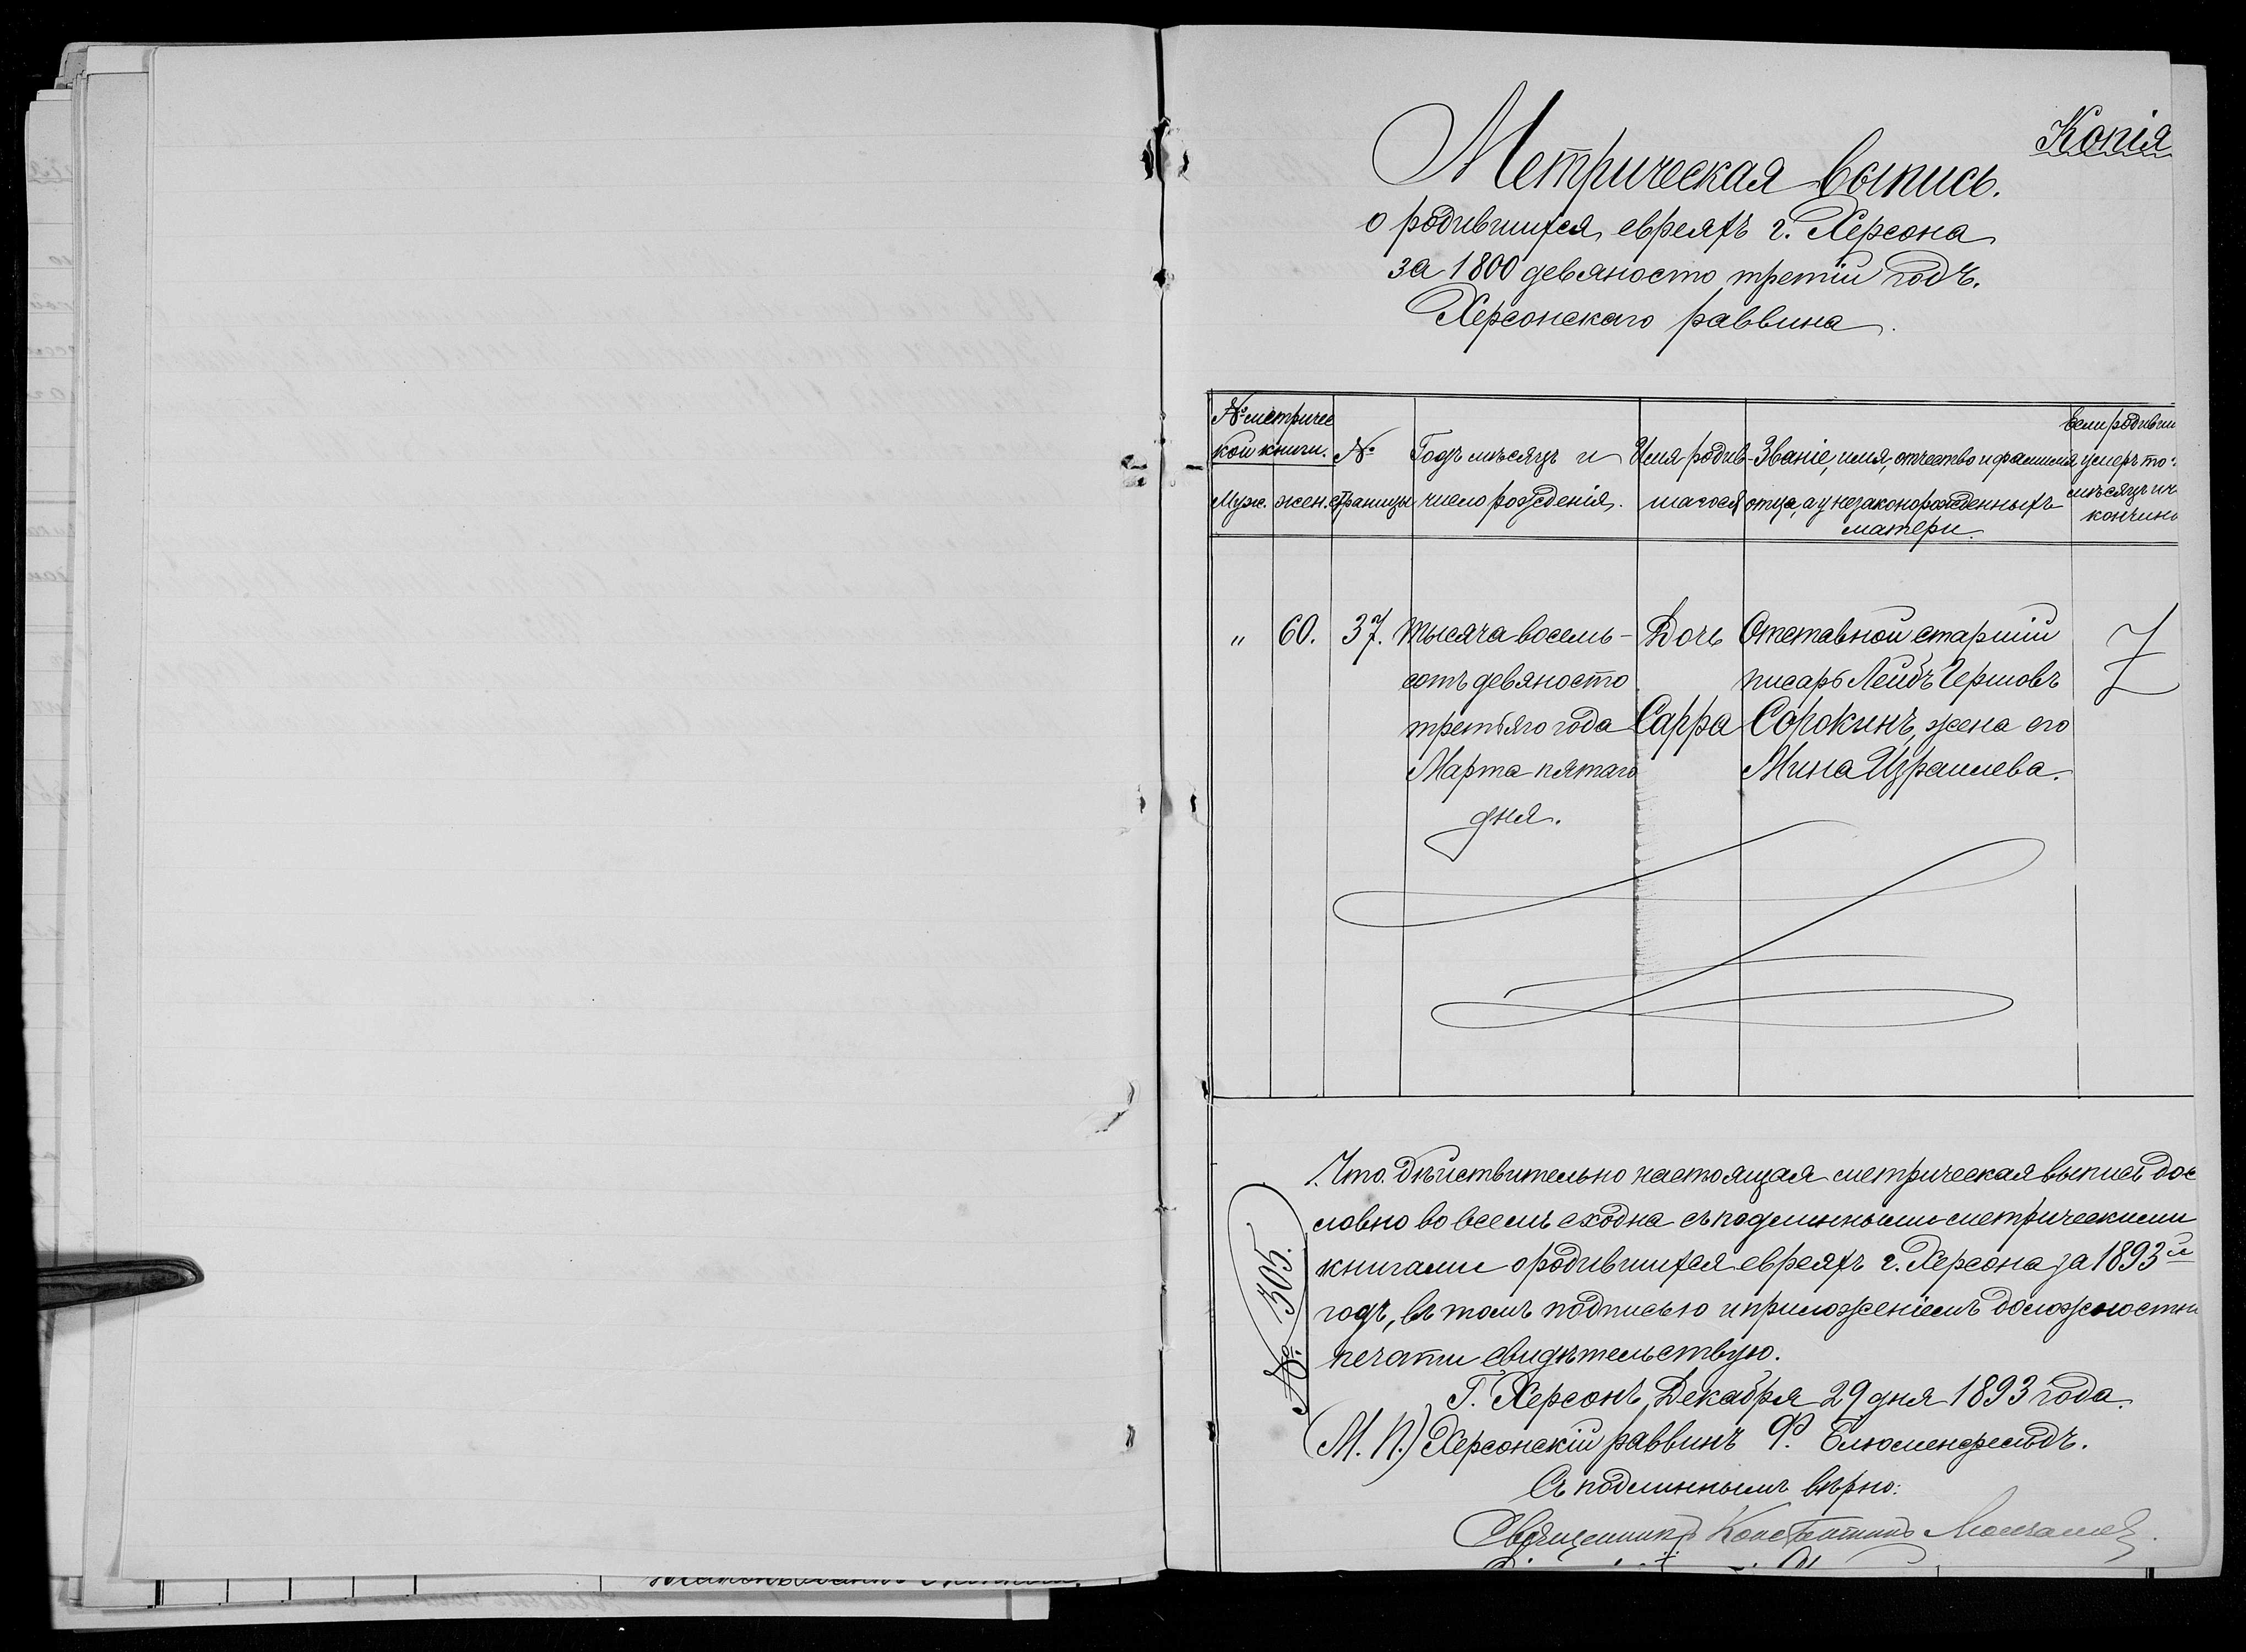 Копія
Метрическая выпись.
о родившихся евреяхъ г. Херсона
за 1800 девяносто третій годъ.
Херсонскаго раввина.
№ метричес
кой книги.
Муж. жен.
№
страницы
Годъ мѣсяцъ и
число рожденія.
Имя родив-
шагося
Званіе, имя, отчество и фамилія
отца, а у незаконорожденныхъ
матери.
Если родивш
умеръ то
мѣсяцъ и ч
кончины
" 60. 37.
тысяча восемь-
сотъ девяносто
третьяго года
Марта пятаго
дня.
Дочь
Сарра
Отставной старшій
писарь Лейбъ Гершовъ
Сорокинъ, жена его
Мина Израилева.
№ 305.
Что дѣйствительно настоящая метрическая выпись дос
ловно во всемъ сходна съ подлинными метрическими
книгами о родившихся евреяхъ г. Херсона за 1893й
годъ, въ томъ подписью и приложеніемъ должностн
печати свидѣтельствую.
Г. Херсонъ, Декабря 29 дня 1893 года.
(М. П.) Херсонскій раввинъ Ф. Блюменфельдъ.
Съ подлиннымъ вѣрно:
Священникъ Константинъ